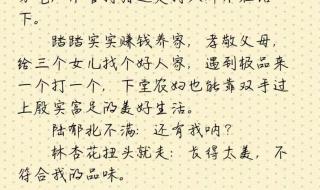 下。
踏踏实实赚钱养家，孝敬父母，
给三个女儿找个好人家，遇到极品来
一个打一个，下堂农妇也能靠双手过
上殷实富足的美好生活。
陆郁北不满：还有我呐？
林杏花扭头就走：长得太美，不
符合我的品味。